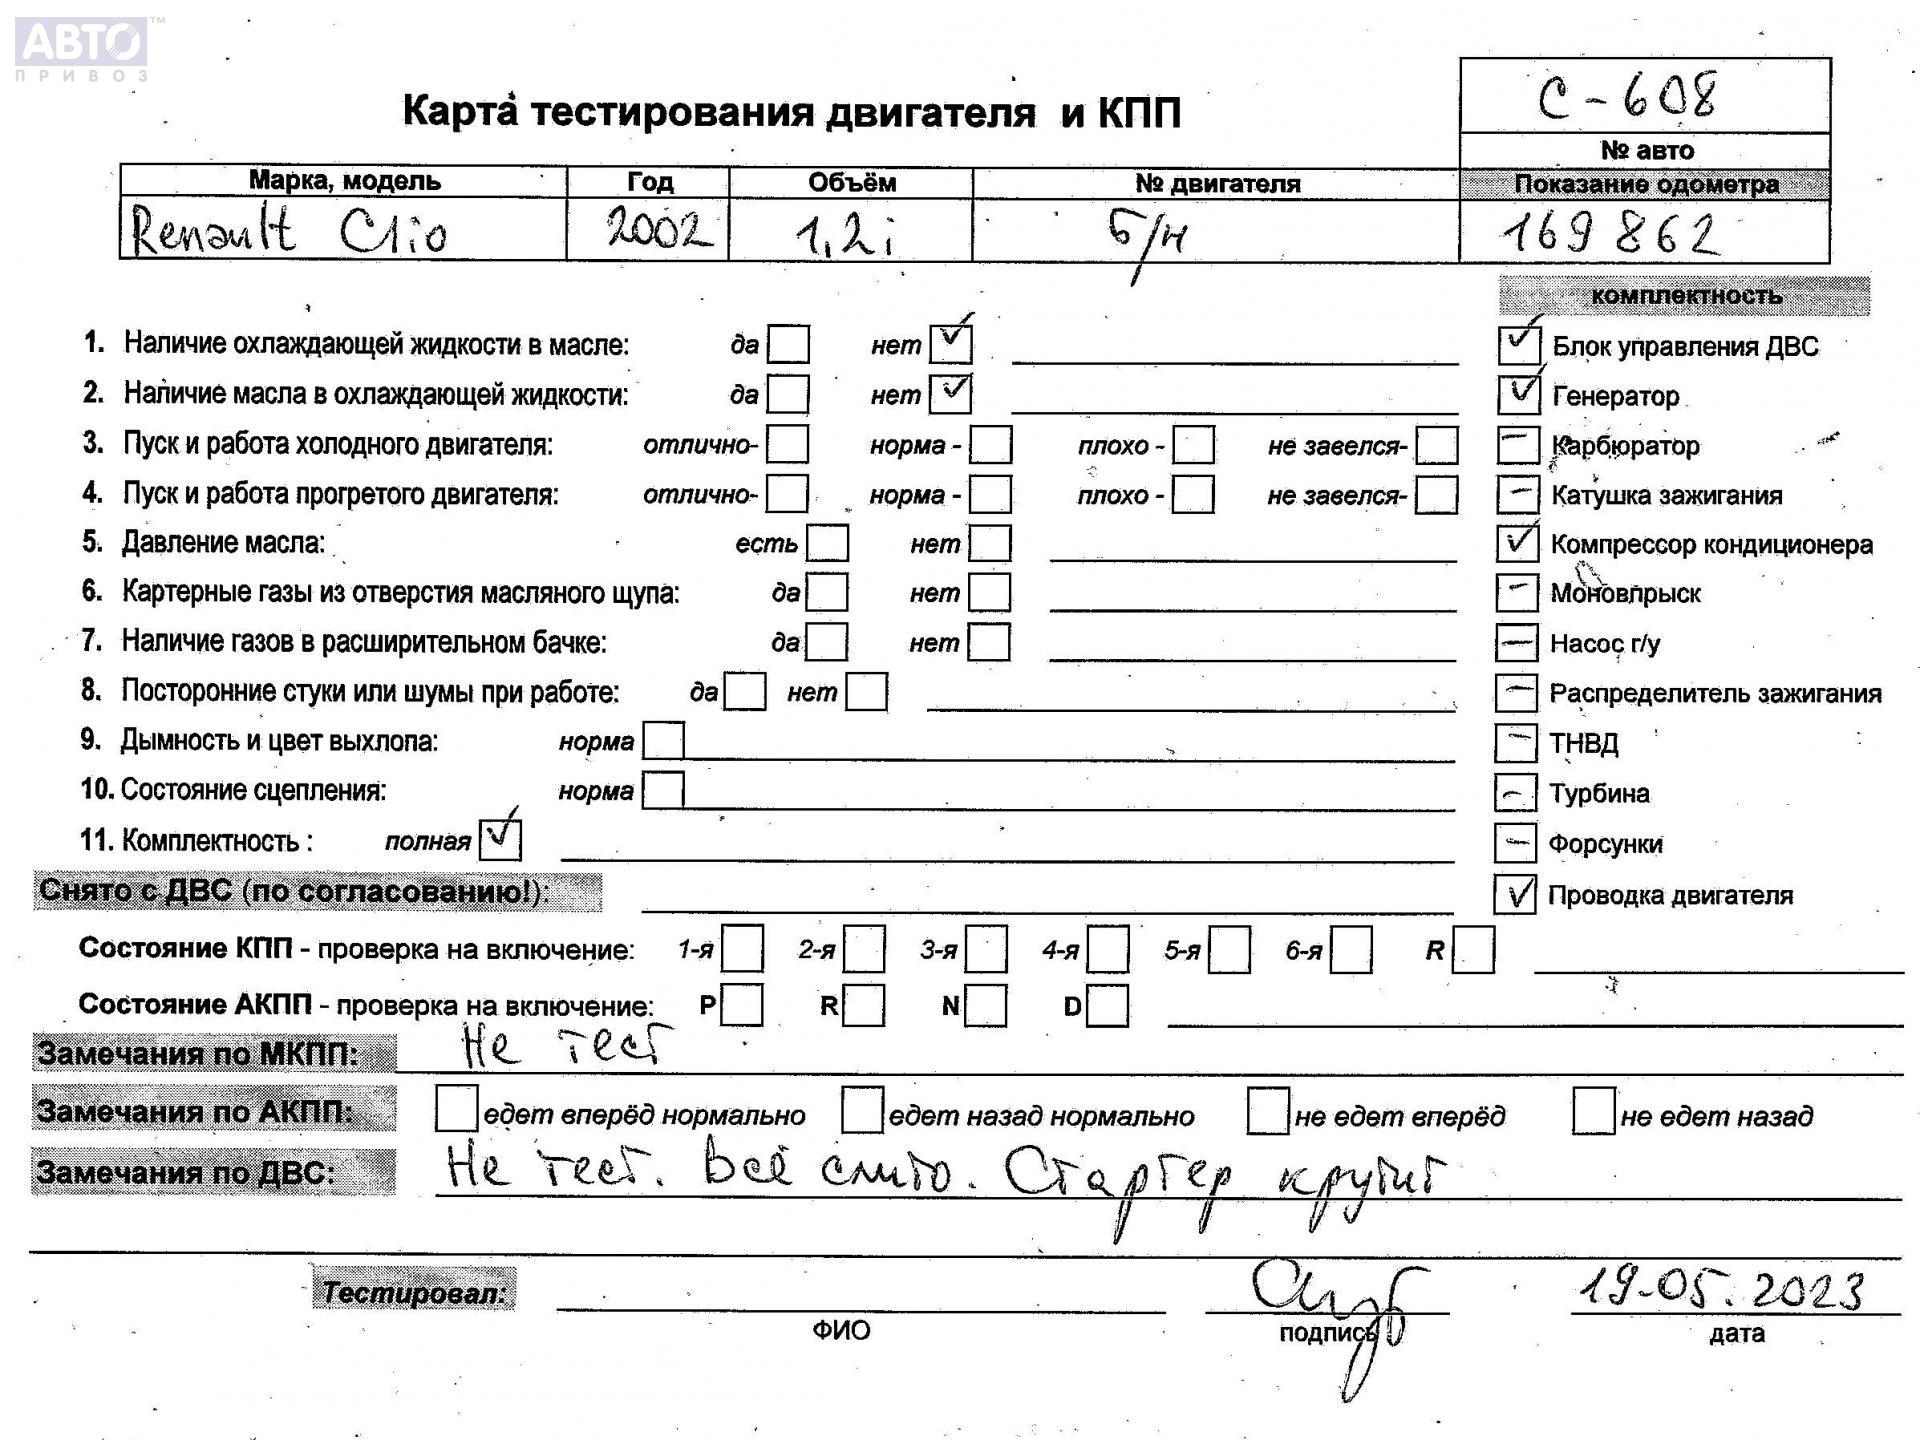 АВТО™
ПРИВОЗ
Карта тестирования двигателя и КПП
С-608
№ авто
Марка, модель Год Объём № двигателя Показание одометра
Renault Clio 2002 1,2i б/н 169862
комплектность
1. Наличие охлаждающей жидкости в масле: да нет ✓ ✓ Блок управления ДВС
2. Наличие масла в охлаждающей жидкости: да нет ✓ ✓ Генератор
3. Пуск и работа холодного двигателя: отлично- норма - плохо - не завелся- – Карбюратор
4. Пуск и работа прогретого двигателя: отлично- норма - плохо - не завелся- – Катушка зажигания
5. Давление масла: есть нет ✓ Компрессор кондиционера
6. Картерные газы из отверстия масляного щупа: да нет – Моновпрыск
7. Наличие газов в расширительном бачке: да нет – Насос г/у
8. Посторонние стуки или шумы при работе: да нет – Распределитель зажигания
9. Дымность и цвет выхлопа: норма – ТНВД
10. Состояние сцепления: норма – Турбина
11. Комплектность : полная ✓ – Форсунки
Снято с ДВС (по согласованию!): ✓ Проводка двигателя
Состояние КПП - проверка на включение: 1-я 2-я 3-я 4-я 5-я 6-я R
Состояние АКПП - проверка на включение: P R N D
Замечания по МКПП: Не тест
Замечания по АКПП: едет вперёд нормально едет назад нормально не едет вперёд не едет назад
Замечания по ДВС: Не тест. Всё слито. Стартер крутит
Тестировал: 19.05.2023
ФИО подпись дата